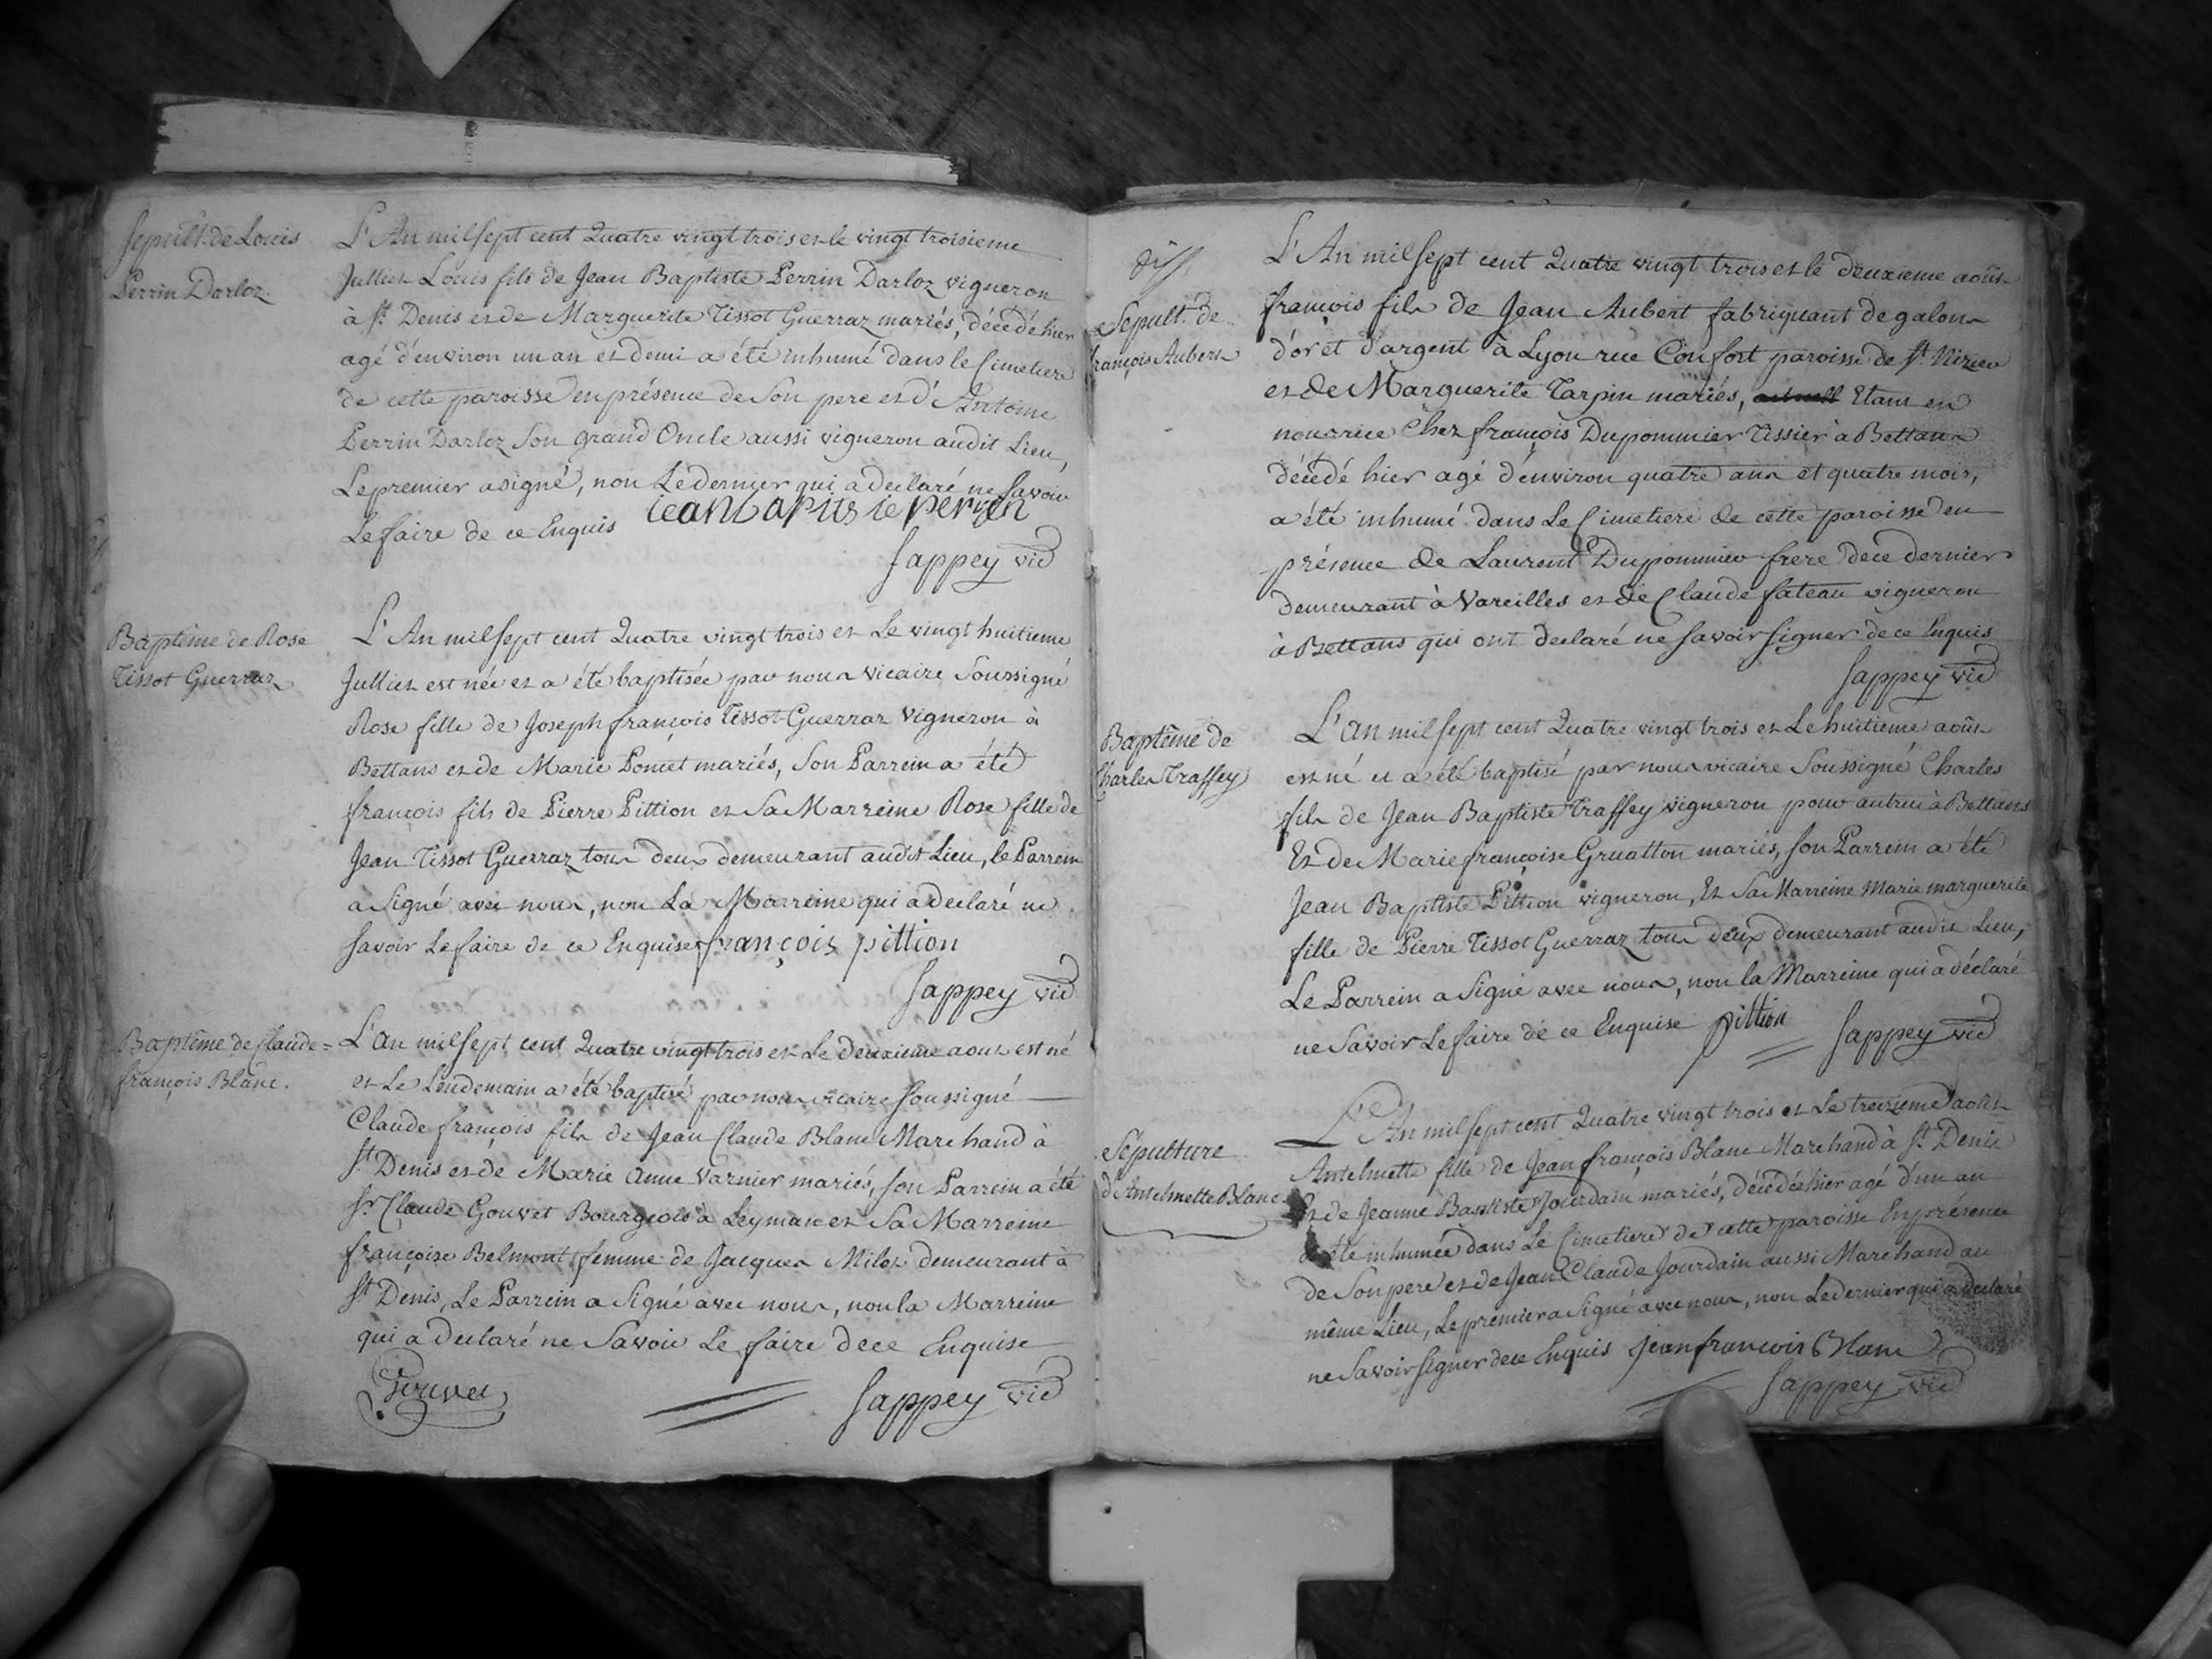 Sepult. de Louis
Perrin Darloz
L'An mil sept cent Quatre vingt trois et le vingt troisieme
Juillet Louis fils de Jean Baptiste Perrin Darloz vigneron
à St. Denis et de Marguerite Tissot Guerraz mariés, décédé hier
agé d'environ un an et demi a été inhumé dans le Cimetiere
de cette paroisse en présence de Son pere et d'Antoine
Perrin Darloz Son grand Oncle aussi vigneron audit Lieu,
Le premier a signé, non Le dernier qui a declaré ne Savoir
Le faire de ce Enquis jean bapits te perrin
Sappey vic
Baptême de Rose
Tissot Guerraz
L'An mil sept cent Quatre vingt trois et Le vingt huitieme
Juillet est née et a été baptisée par nous vicaire Soussigné
Rose fille de Joseph françois Tissot Guerraz vigneron à
Bettans et de Marie Poncet mariés, Son Parrein a été
françois fils de Pierre Pittion et Sa Marreine Rose fille de
Jean Tissot Guerraz tous deux demeurant audit Lieu, le Parrein
a Signé avec nous, non La Marreine qui a declaré ne
Savoir Le faire de ce Enquise françois pittion
Sappey vic
Baptême de Claude=
françois Blanc.
L'an mil sept cent Quatre vingt trois et Le deuxieme aout est né
et Le Lendemain a été baptisé par nous vicaire Soussigné
Claude françois fils de Jean Claude Blanc Marchand à
St. Denis et de Marie Anne Varnier mariés, Son Parrein a été
Sr. Claude Gouvet Bourgeois à Leyman et Sa Marreine
françoise Belmont femme de Jacques Milot demeurant à
St. Denis, Le Parrein a Signé avec nous, non la Marreine
qui a declaré ne Savoir Le faire de ce Enquise
Gouvet
Sappey vic
Sepult. de
françois Aubert
L'An mil sept cent Quatre vingt trois et le deuxieme août
françois fils de Jean Aubert fabriquant de galons
d'or et d'argent à Lyon rue Confort paroisse de St. Nizier
et de Marguerite Tarpin mariés, Etant en
nourrice Chez françois Dupommier Tissier à Bettans
décédé hier agé d'environ quatre ans et quatre mois,
a été inhumé dans Le Cimetiere de cette paroisse en
présence de Laurent Dupommier frere de ce dernier
demeurant à Vareilles et de Claude fateau vigneron
à Bettans qui ont declaré ne savoir signer de ce Enquis
Sappey vic
Baptême de
Charles Traffey
L'an mil sept cent Quatre vingt trois et Le huitieme août
est né et a été baptisé par nous vicaire Soussigné Charles
fils de Jean Baptiste Traffey vigneron pour autrui à Bettans
Et de Marie françoise Gruatton mariés, Son Parrein a été
Jean Baptiste Pittion vigneron, Et Sa Marreine Marie marguerite
fille de Pierre Tissot Guerraz tous deux demeurant audit Lieu,
Le Parrein a Signé avec nous, non la Marreine qui a déclaré
ne Savoir Le faire de ce Enquise pittion
Sappey vic
Sépulture
d'Antelmette Blanc
L'An mil sept cent Quatre vingt trois et Le treizieme août
Antelmette fille de Jean françois Blanc Marchand à St. Denis
Et de Jeanne Baptiste Jourdain mariés, décédée hier agé d'un an
a été inhumée dans Le Cimetiere de cette paroisse En présence
de Son pere et de Jean Claude Jourdain aussi Marchand au
même Lieu, Le premier a Signé avec nous, non Le dernier qui a declaré
ne Savoir Signer de ce Enquis jean francois Blanc
Sappey vic